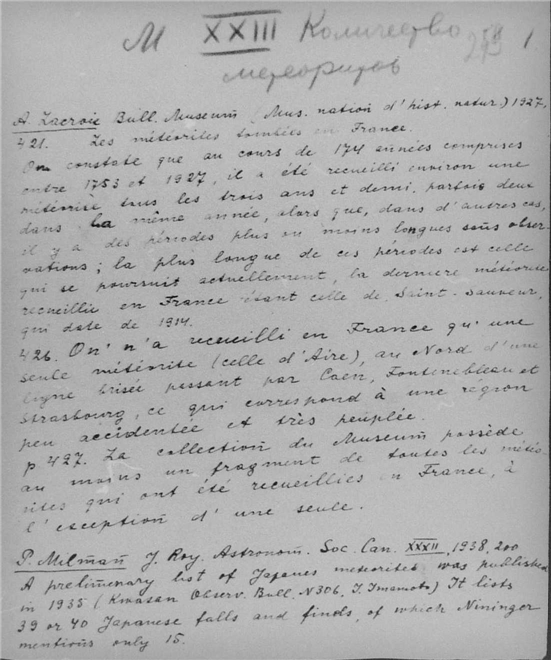 М XXIII Количество 1
метеоритов
A. Lacroix Bull. Museum (Mus. nation d'hist. natur.) 1927,
421. Les météorites tombées en France.
On constate que au cours de 174 années comprises
entre 1753 et 1927, il a été recueilli environ une
météorite tous les trois ans et demi, parfois deux
dans la même année, alors que, dans d'autres cas,
il y a des périodes plus ou moins longues sans obser-
vations; la plus longue de ces périodes est celle
qui se poursuit actuellement, la derniere météorite
recueillie en France étant celle de Saint-Sauveur,
qui date de 1914.
426. On n'a recueilli en France qu'une
seule météorite (celle d'Aire), au Nord d'une
ligne brisée passant par Caen, Fontenebleau et
Strasbourg, ce qui correspond à une région
peu accidentée et très peuplée.
p. 427. La collection du Museum possède
au moins un fragment de toutes les météo-
rites qui ont été recueillies en France, à
l'exception d'une seule.
P. Milman J. Roy. Astronom. Soc. Can. XXXII, 1938, 200
A prelimenary list of Japanes meteorites was published
in 1935 (Kwasan Observ. Bull. N306, I. Imamoto) It lists
39 or 40 Japanese falls and finds, of which Nininger
mentions only 15.